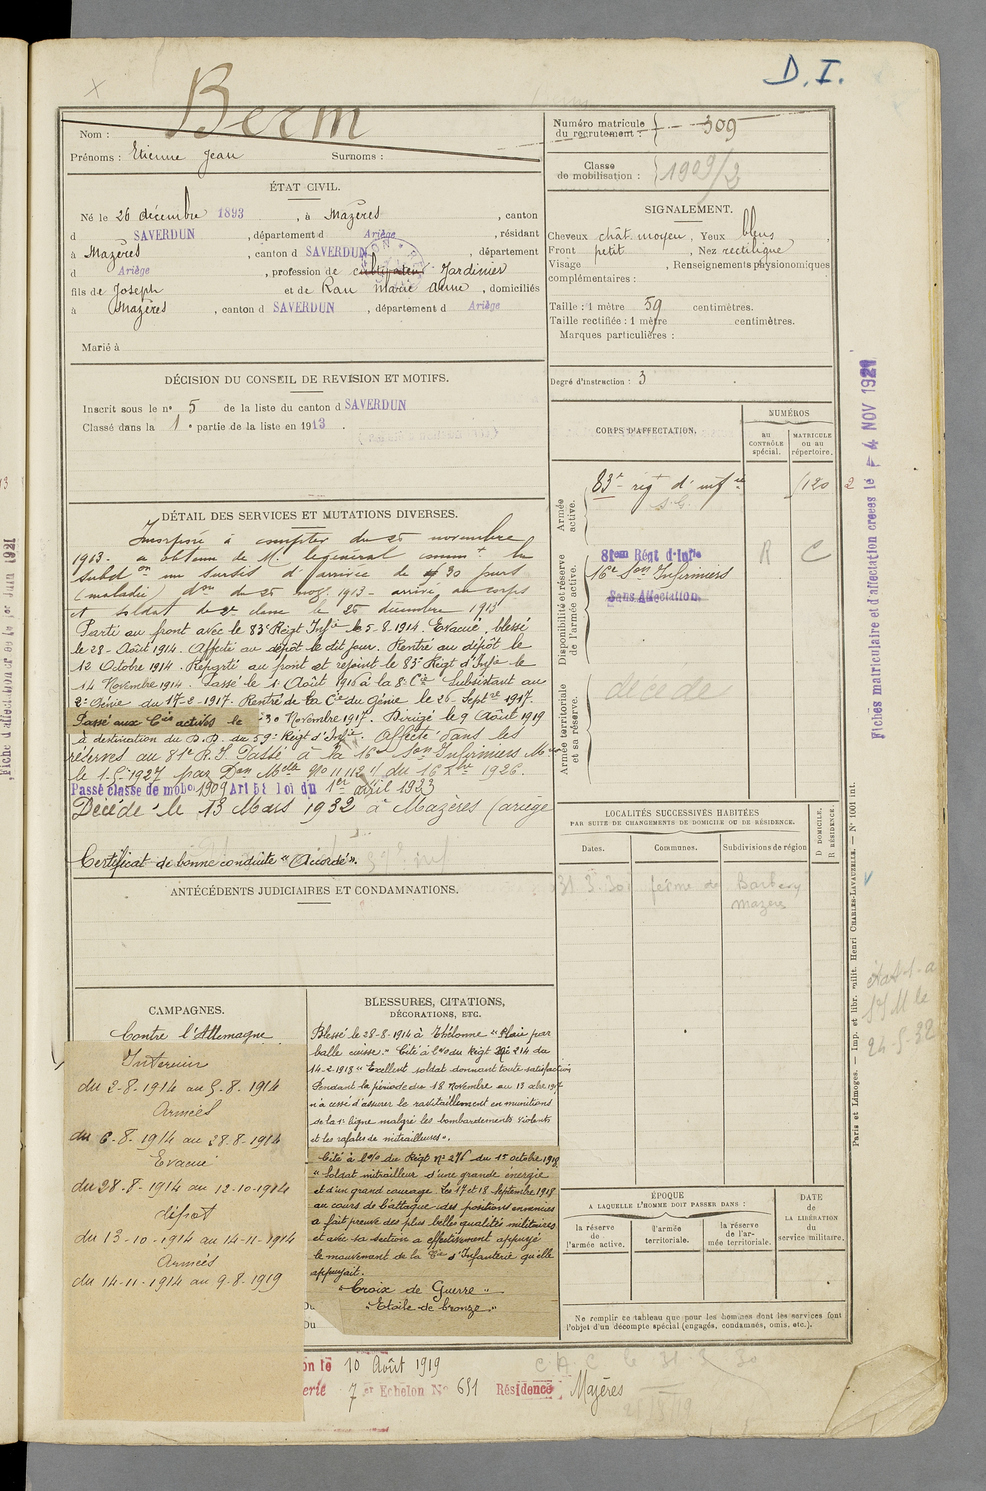 D. I.
Berm
Nom :
Prénoms : Etienne Jean Surnoms :
Numéro matricule
du recrutement : 309
Classe
de mobilisation : 1909/2
ÉTAT CIVIL.
Né le 26 décembre 1893, à Mazères, canton
d SAVERDUN, département d Ariège, résidant
à Mazères, canton d SAVERDUN, département
d Ariège, profession de cultivateur Jardinier
fils de Joseph et de Rau marie anne, domiciliés
à Mazères, canton d SAVERDUN, département d Ariège
Marié à
SIGNALEMENT.
Cheveux chât. moyen, Yeux bleus,
Front petit, Nez rectiligne
Visage , Renseignements physionomiques
complémentaires :
Taille : 1 mètre 59 centimètres.
Taille rectifiée : 1 mètre centimètres.
Marques particulières :
Degré d'instruction : 3
DÉCISION DU CONSEIL DE REVISION ET MOTIFS.
Inscrit sous le n° 5 de la liste du canton d SAVERDUN
Classé dans la 1e partie de la liste en 1913.
DÉTAIL DES SERVICES ET MUTATIONS DIVERSES.
Incorporé à compter du 25 novembre
1913. a obtenu de M. le général commt la
subdon un sursis d'arrivée de 30 jours
(maladie) don du 25 nov. 1913 - arrivé au corps
et soldat de 2e classe le 26 décembre 1913
Parti au front avec le 83e Régt Infie le 5-8-1914. Evacué, blessé
le 28-Août 1914. Affecté au dépôt le dit jour. Rentré au dépôt le
12 Octobre 1914. Réparti au front et rejoint le 83e Régt d'Infie le
14 Novembre 1914. Passé le 1er Août 1916 à la 8e Cie Subsistant au
2e Génie du 17-2-1917. Rentré de la Cie du Génie le 26-Septbre 1917.
Passé aux Cies actives le 30 Novembre 1917. Dirigé le 9 Août 1919
à destination du D.D. du 59e Régt d'Infie. Affecté dans les
réserves au 81e R.I. Passé à la 16e Son Infirmiers Mres
le 1.5.1927 par Don Melle No 11112 1/ du 16 Xbre 1926.
Passé classe de mobon 1909 Art 58 loi du 1er avril 1923
Décédé le 13 Mars 1932 à Mazères (ariège
Certificat de bonne conduite "Accordé".
ANTÉCÉDENTS JUDICIAIRES ET CONDAMNATIONS.
CORPS D'AFFECTATION.
NUMÉROS
au
CONTRÔLE
spécial.
MATRICULE
ou au
répertoire.
Armée
active.
83e régt d'infie
120
2
Disponibilité et réserve
de l'armée active.
81eme Régt d'Infie
R C
16e Son Infirmiers
Sans Affectation.
Armée territoriale
et sa réserve.
décédé
LOCALITÉS SUCCESSIVES HABITÉES
PAR SUITE DE CHANGEMENTS DE DOMICILE OU DE RÉSIDENCE.
Dates. Communes. Subdivisions de région
D DOMICILE.
R RÉSIDENCE.
31.3.30 ferme de
Mazères
CAMPAGNES.
Contre l'Allemagne
Interieur
du 2-8-1914 au 5-8-1914
Armées
du 6-8-1914 au 28-8-1914
Evacué
du 28-8-1914 au 12-10-1914
dépot
du 13-10-1914 au 14-11-1914
Armées
du 14-11-1914 au 9-8-1919
BLESSURES, CITATIONS,
DÉCORATIONS, ETC.
Blessé le 28-8-1914 à Thélonne "Plaie par
balle cuisse." Cité à l'o/o du Régt No 214 du
14-2-1918 "Excellent soldat donnant toute satisfaction
Pendant la période du 18 Novembre au 13 Xbre 1917
n'a cessé d'assurer le ravitaillement en munitions
de la 1e ligne malgré les bombardements violents
et les rafales de mitrailleuses".
Cité à l'o/o du Régt No 276 du 15 octobre 1918
"Soldat mitrailleur d'une grande énergie
et d'un grand courage. Les 17 et 18 Septembre 1918
au cours de l'attaque des positions ennemies
a fait preuve des plus belles qualités militaires
et avec sa section a effectivement appuyé
le mouvement de la Cie d'Infanterie qu'elle
appuyait.
"Croix de Guerre"
"Etoile de bronze."
Du
Du
ÉPOQUE
A LAQUELLE L'HOMME DOIT PASSER DANS :
la réserve
de
l'armée active.
l'armée
territoriale.
la réserve
de l'ar-
mée territoriale.
DATE
de
LA LIBÉRATION
du
service militaire.
Ne remplir ce tableau que pour les hommes dont les services font
l'objet d'un décompte spécial (engagés, condamnés, omis, etc.).
on le 10 Août 1919
erie 7 er Echelon No 681 Résidence Mazères
C.A.C le 31-3-30
Fiches matriculaire et d'affectation créées le 4 NOV 1921
Paris et Limoges. — Imp. et libr. milit. Henri CHARLES-LAVAUZELLE. — N° 1001 int.
24-5-32
Fiche d'affectation créée le 1er Juin 1921